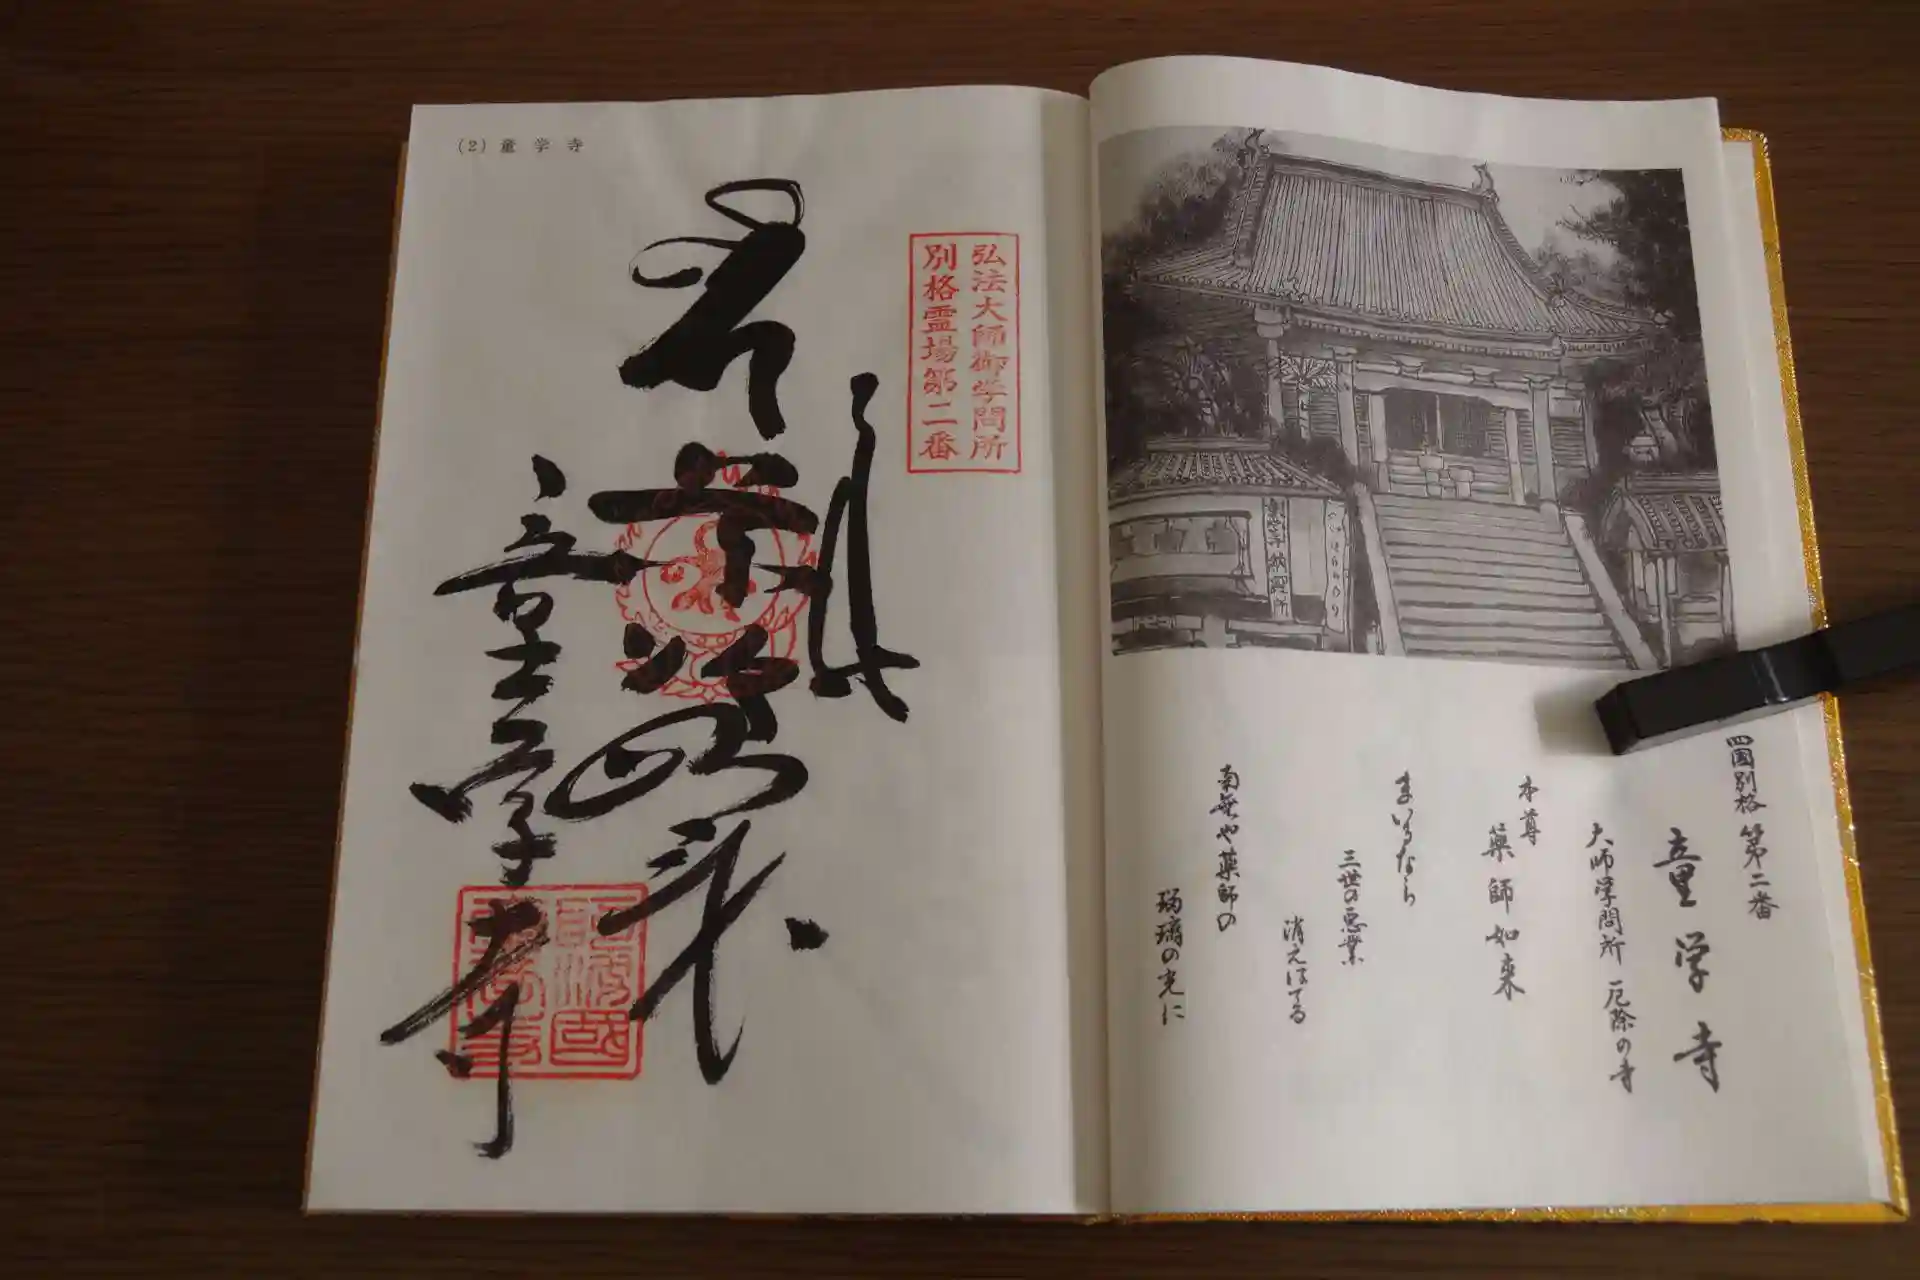 四國別格 第二番
童学寺
大師学問所 厄除の寺
本尊
薬師如来
まいるなら
三世の悪業
消えはてる
南無や薬師の
瑠璃の光に
童学寺納経所
(2) 童学寺
弘法大師御学問所
別格霊場第二番
童学寺